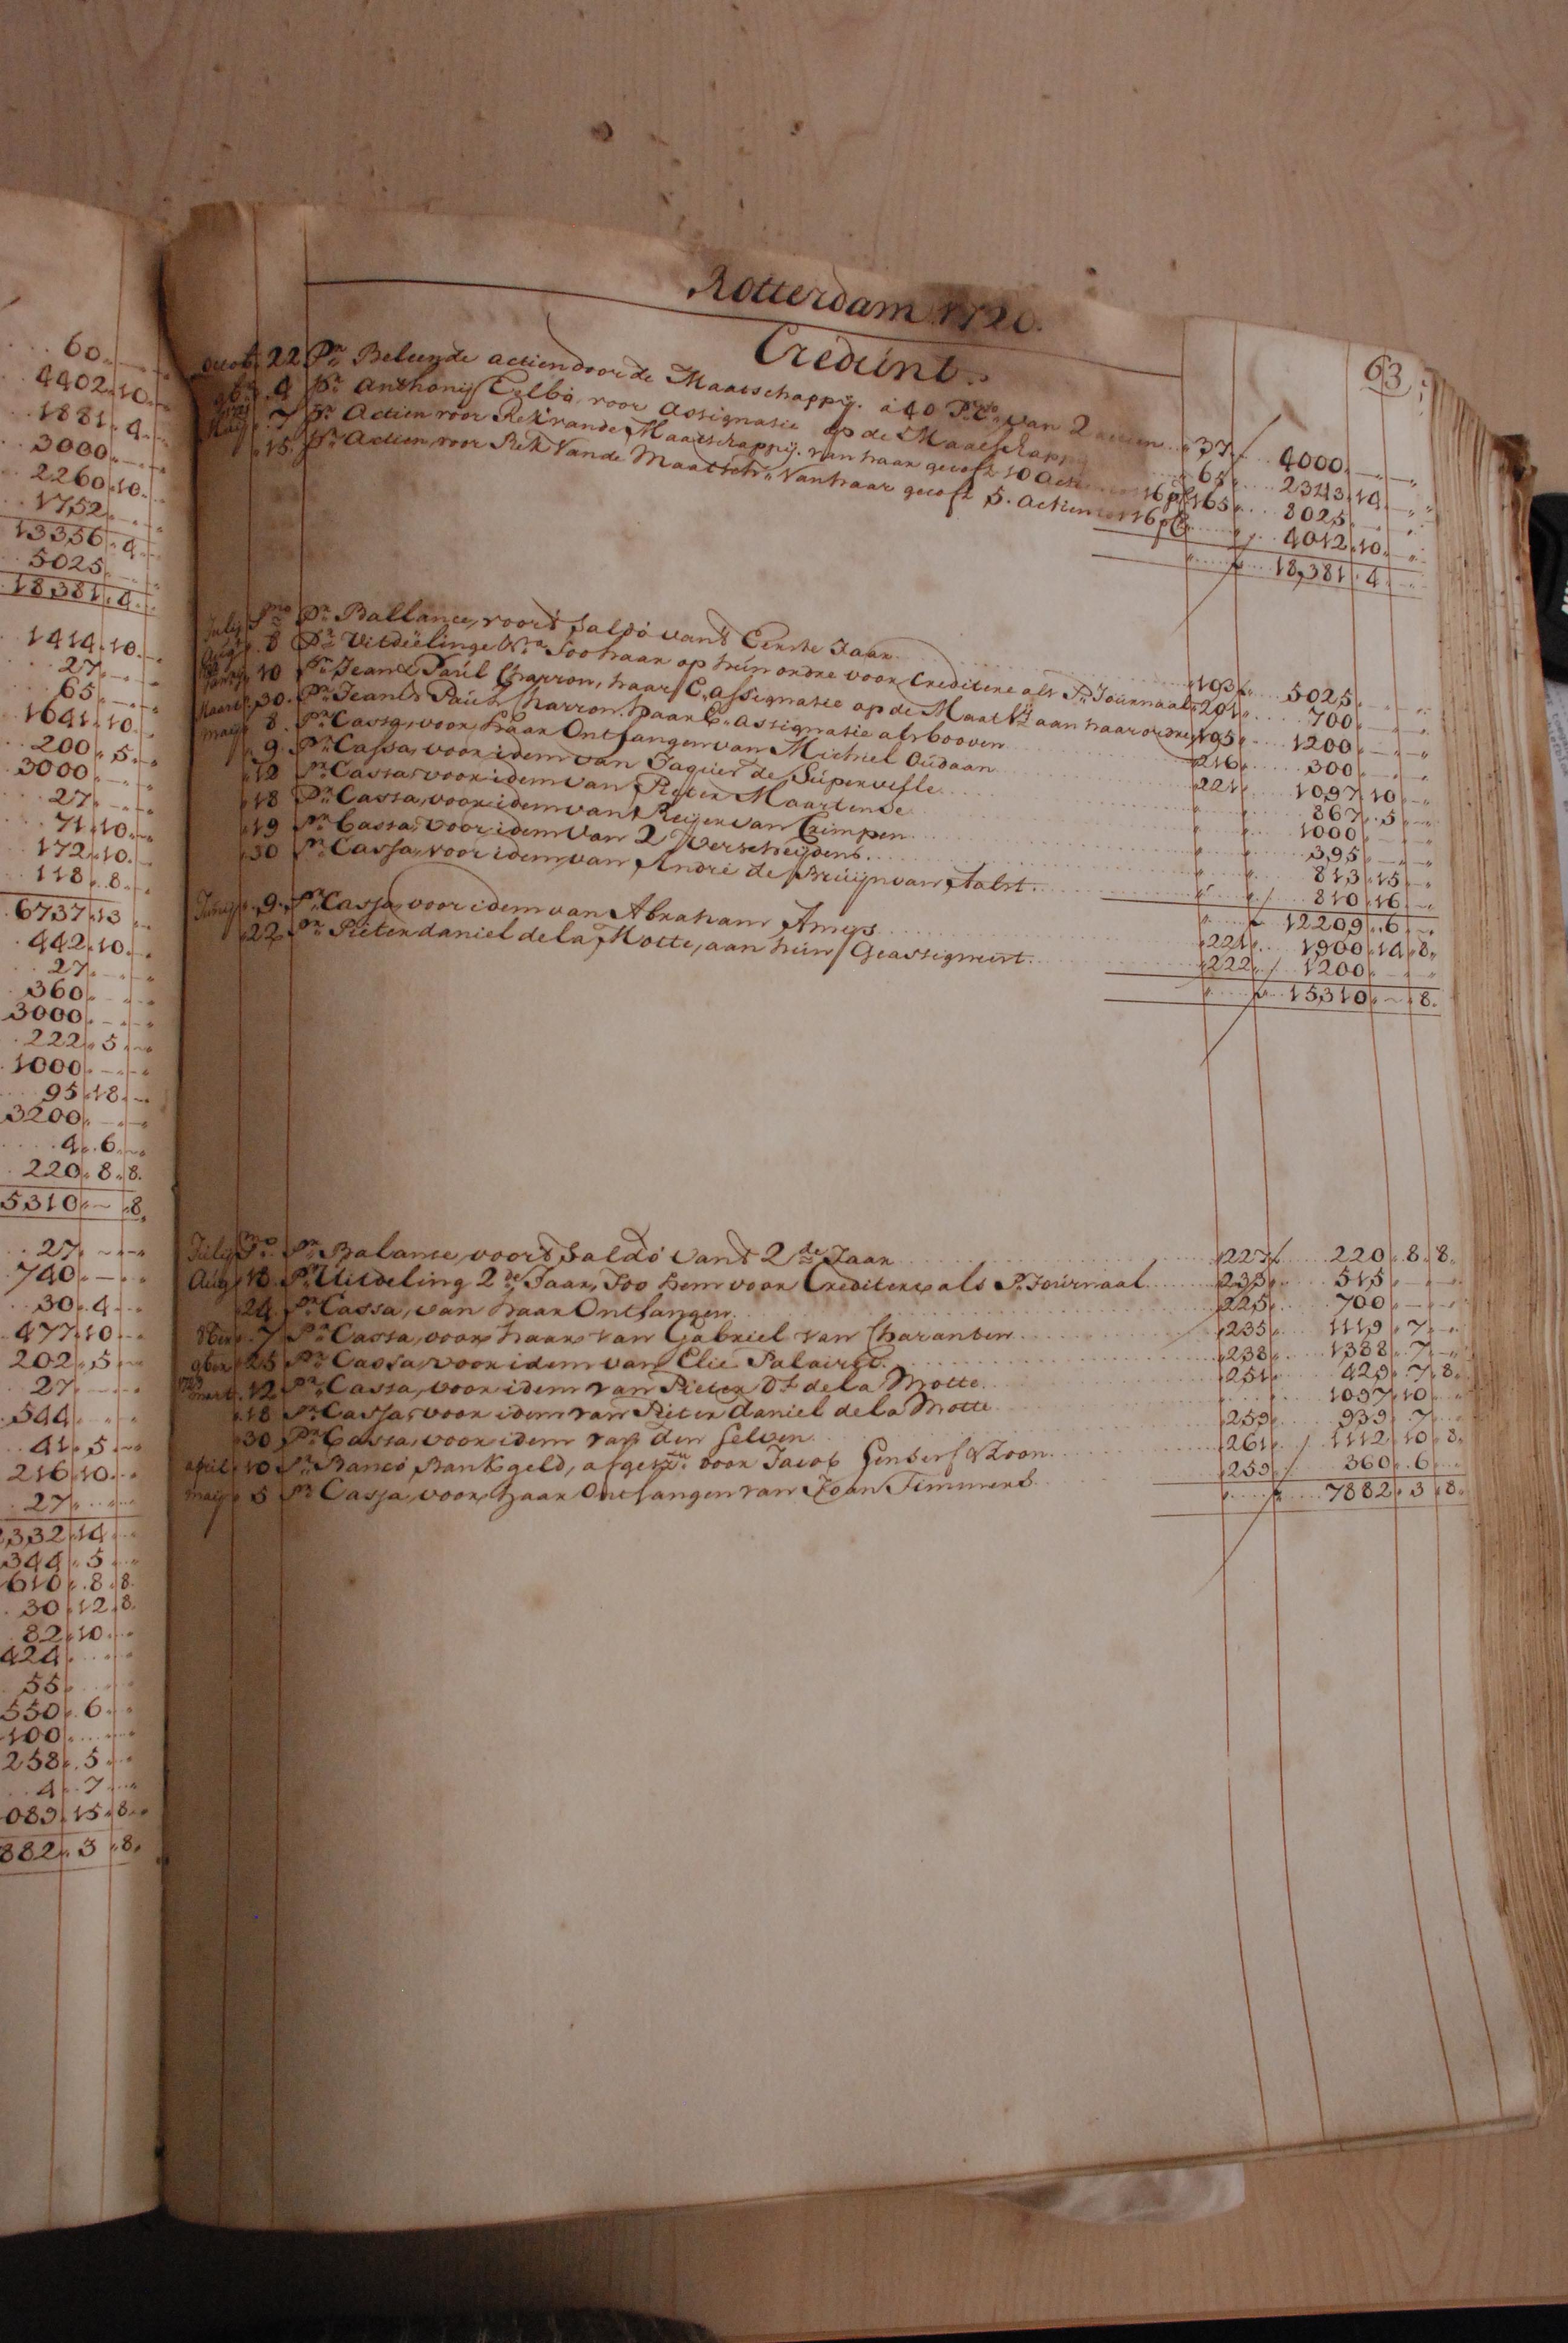 60.
4402.10.
1881.4.
3000.
2260.10.
1752.
13356.4.
5025.
18381.4.
1414.10.
27.
65.
1641.10.
200.5.
3000.
27.
71.10.
172.10.
118.8.
6737.13.
442.10.
27.
360.
3000.
222.5.
1000.
95.18.
3200.
4.6.
220.8.8.
5310.8.
27.
740.
30.4.
477.10.
202.5.
27.
544.
41.5.
216.10.
27.
332.14.
344.5.
610.8.8.
30.12.8.
82.10.
424.
55.
550.6.
100.
258.5.
4.7.
089.15.8.
882.3.8.
Rotterdam 1720.
63
Credint.
Octob. 22 Pr. Beleende actien door de Maatschappij. a 40 P.Cto. van 2 actien 37 4000.
9br. 4 Pr. Anthonij voor Assignatie op de Maatschappij 65 2343.14.
Maij 7 Pr. Actien voor Rek vande Maatschappij. van haar gecoft 10 Actien 16 p 165 8025.
15. Pr. Actien voor Rek Vande Maatsch. Van haar gecoft 5. Actien 16 p 4012.10.
18381.4.
Julij Pmo Pr. Ballance, voor't Saldo van't Eerste Jaar 193 5025.
Aug. 8 Pr. Uitdeelinge Soo haar op hun ordre voor Creditere als Pr. Journaal 201 700.
10 Pr. Jean & Paul Charron, haar E. Assignatie op de Maats. aan haar ordre 195 1200.
Maart 30. Pr. Jean & Paul Charron, haar E. Assignatie als booven 216 300.
Maij 8. Pr. Cassa, voor haar Ontfangen van Michiel Oudaan 221 1097.10
9. Pr. Cassa, voor idem van Jaquet de Superville 867.5
12 Pr. Cassa, voor idem van Pieter Maartense 1000.
18 Pr. Cassa, voor idem van Reijer van Crimpen 395.
19 Pr. Cassa, voor idem van 2 Verscheijdens. 813.15
30 Pr. Cassa, voor idem van André de Bruijn van Aalst. 810.16
12209.6
Junij 9. Pr. Cassa, voor idem van Abraham Amijs 221 1900.14.8.
22 Pr. Pieter daniel de la Motte, aan hun Geassigneert. 222 1200.
15310.8.
Julij Pmo. Pr. Balance, voor't Saldo van't 2de Jaar 227 220.8.8.
Aug. 18. Pr. Uitdeling 2de Jaar, Soo hem voor Creditere als Pr. Journaal 233 515.
24. Pr. Cassa, van haar Ontfangen 225 700
8ber. 7 Pr. Cassa, voor haar van Gabriel van Charanten 235 1119.7
9ber 25 Pr. Cassa, voor idem van Elie Palairet. 238 1388.7
Mart. 12 Pr. Cassa, voor idem van Pieter Dl. de la Motte 251 429.7.8.
18 Pr. Cassa, voor idem van Pieter daniel de la Motte 1097.10
30 Pr. Cassa, voor idem van den Selven 259 939.7
April 10 Pr. Banco Bankgeld, afges. door Jacob Senserf & Zoon 261 1112.10.8.
Maij 5 Pr. Cassa, voor haar Ontfangen van Joan Timmers. 259 360.6
7882.3.8.